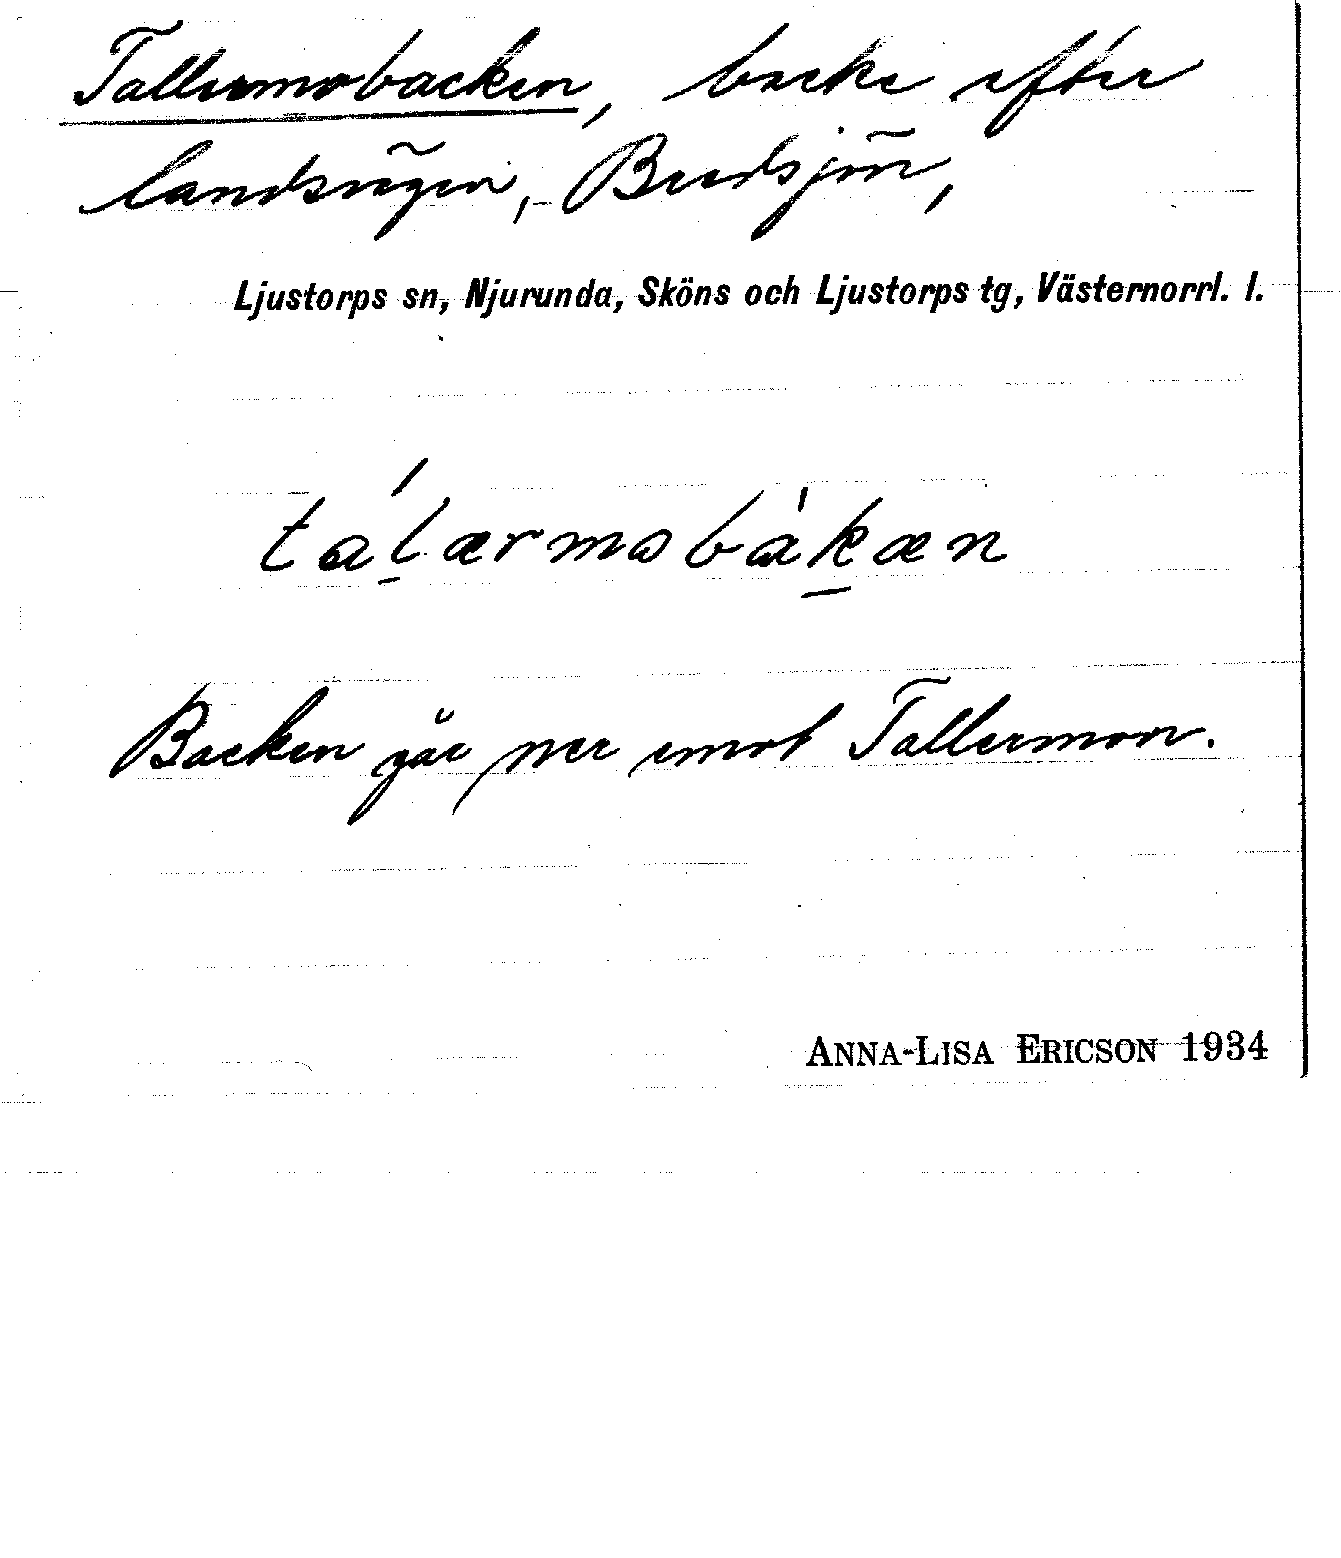 Tallermobacken, backe efter
landsvägen, Bredsjön,
Ljustorps sn, Njurunda, Sköns och Ljustorps tg, Västernorrl. l.
tálærmobàkæn
Backen går ner emot Tallermon.
ANNA-LISA ERICSON 1934